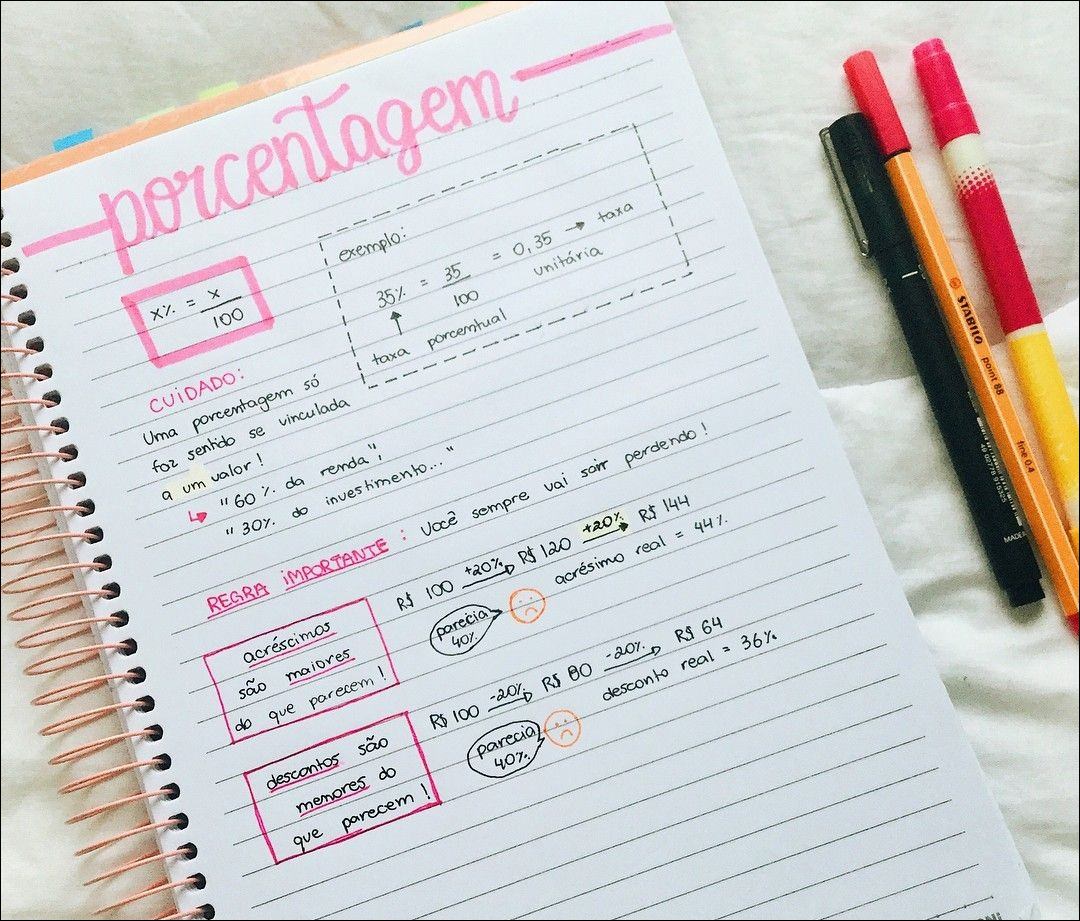 porcentagem
x% = x
100
exemplo:
35% = 35 = 0,35 → taxa
100 unitária
↑
taxa porcentual
CUIDADO:
Uma porcentagem só
faz sentido se vinculada
a um valor!
↳ "60% da renda",
"30% do investimento..."
REGRA IMPORTANTE: Você sempre vai sair perdendo!
acréscimos
são maiores
do que parecem!
R$ 100 +20%→ R$ 120 +20%→ R$ 144
parecia
40%
acrésimo real = 44%
descontos são
menores do
que parecem!
R$ 100 -20%→ R$ 80 -20%→ R$ 64
parecia
40%
desconto real = 36%
STABILO
point 88
fine 0.4